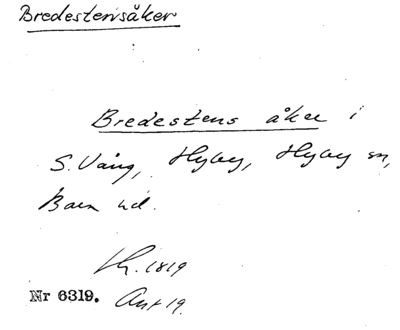 Bredestensåker
Bredestens åker i
S. Vång, Hyby, Hyby sn,
Bara hd.
Kr. 1819
Nr 6319. Ant 19.